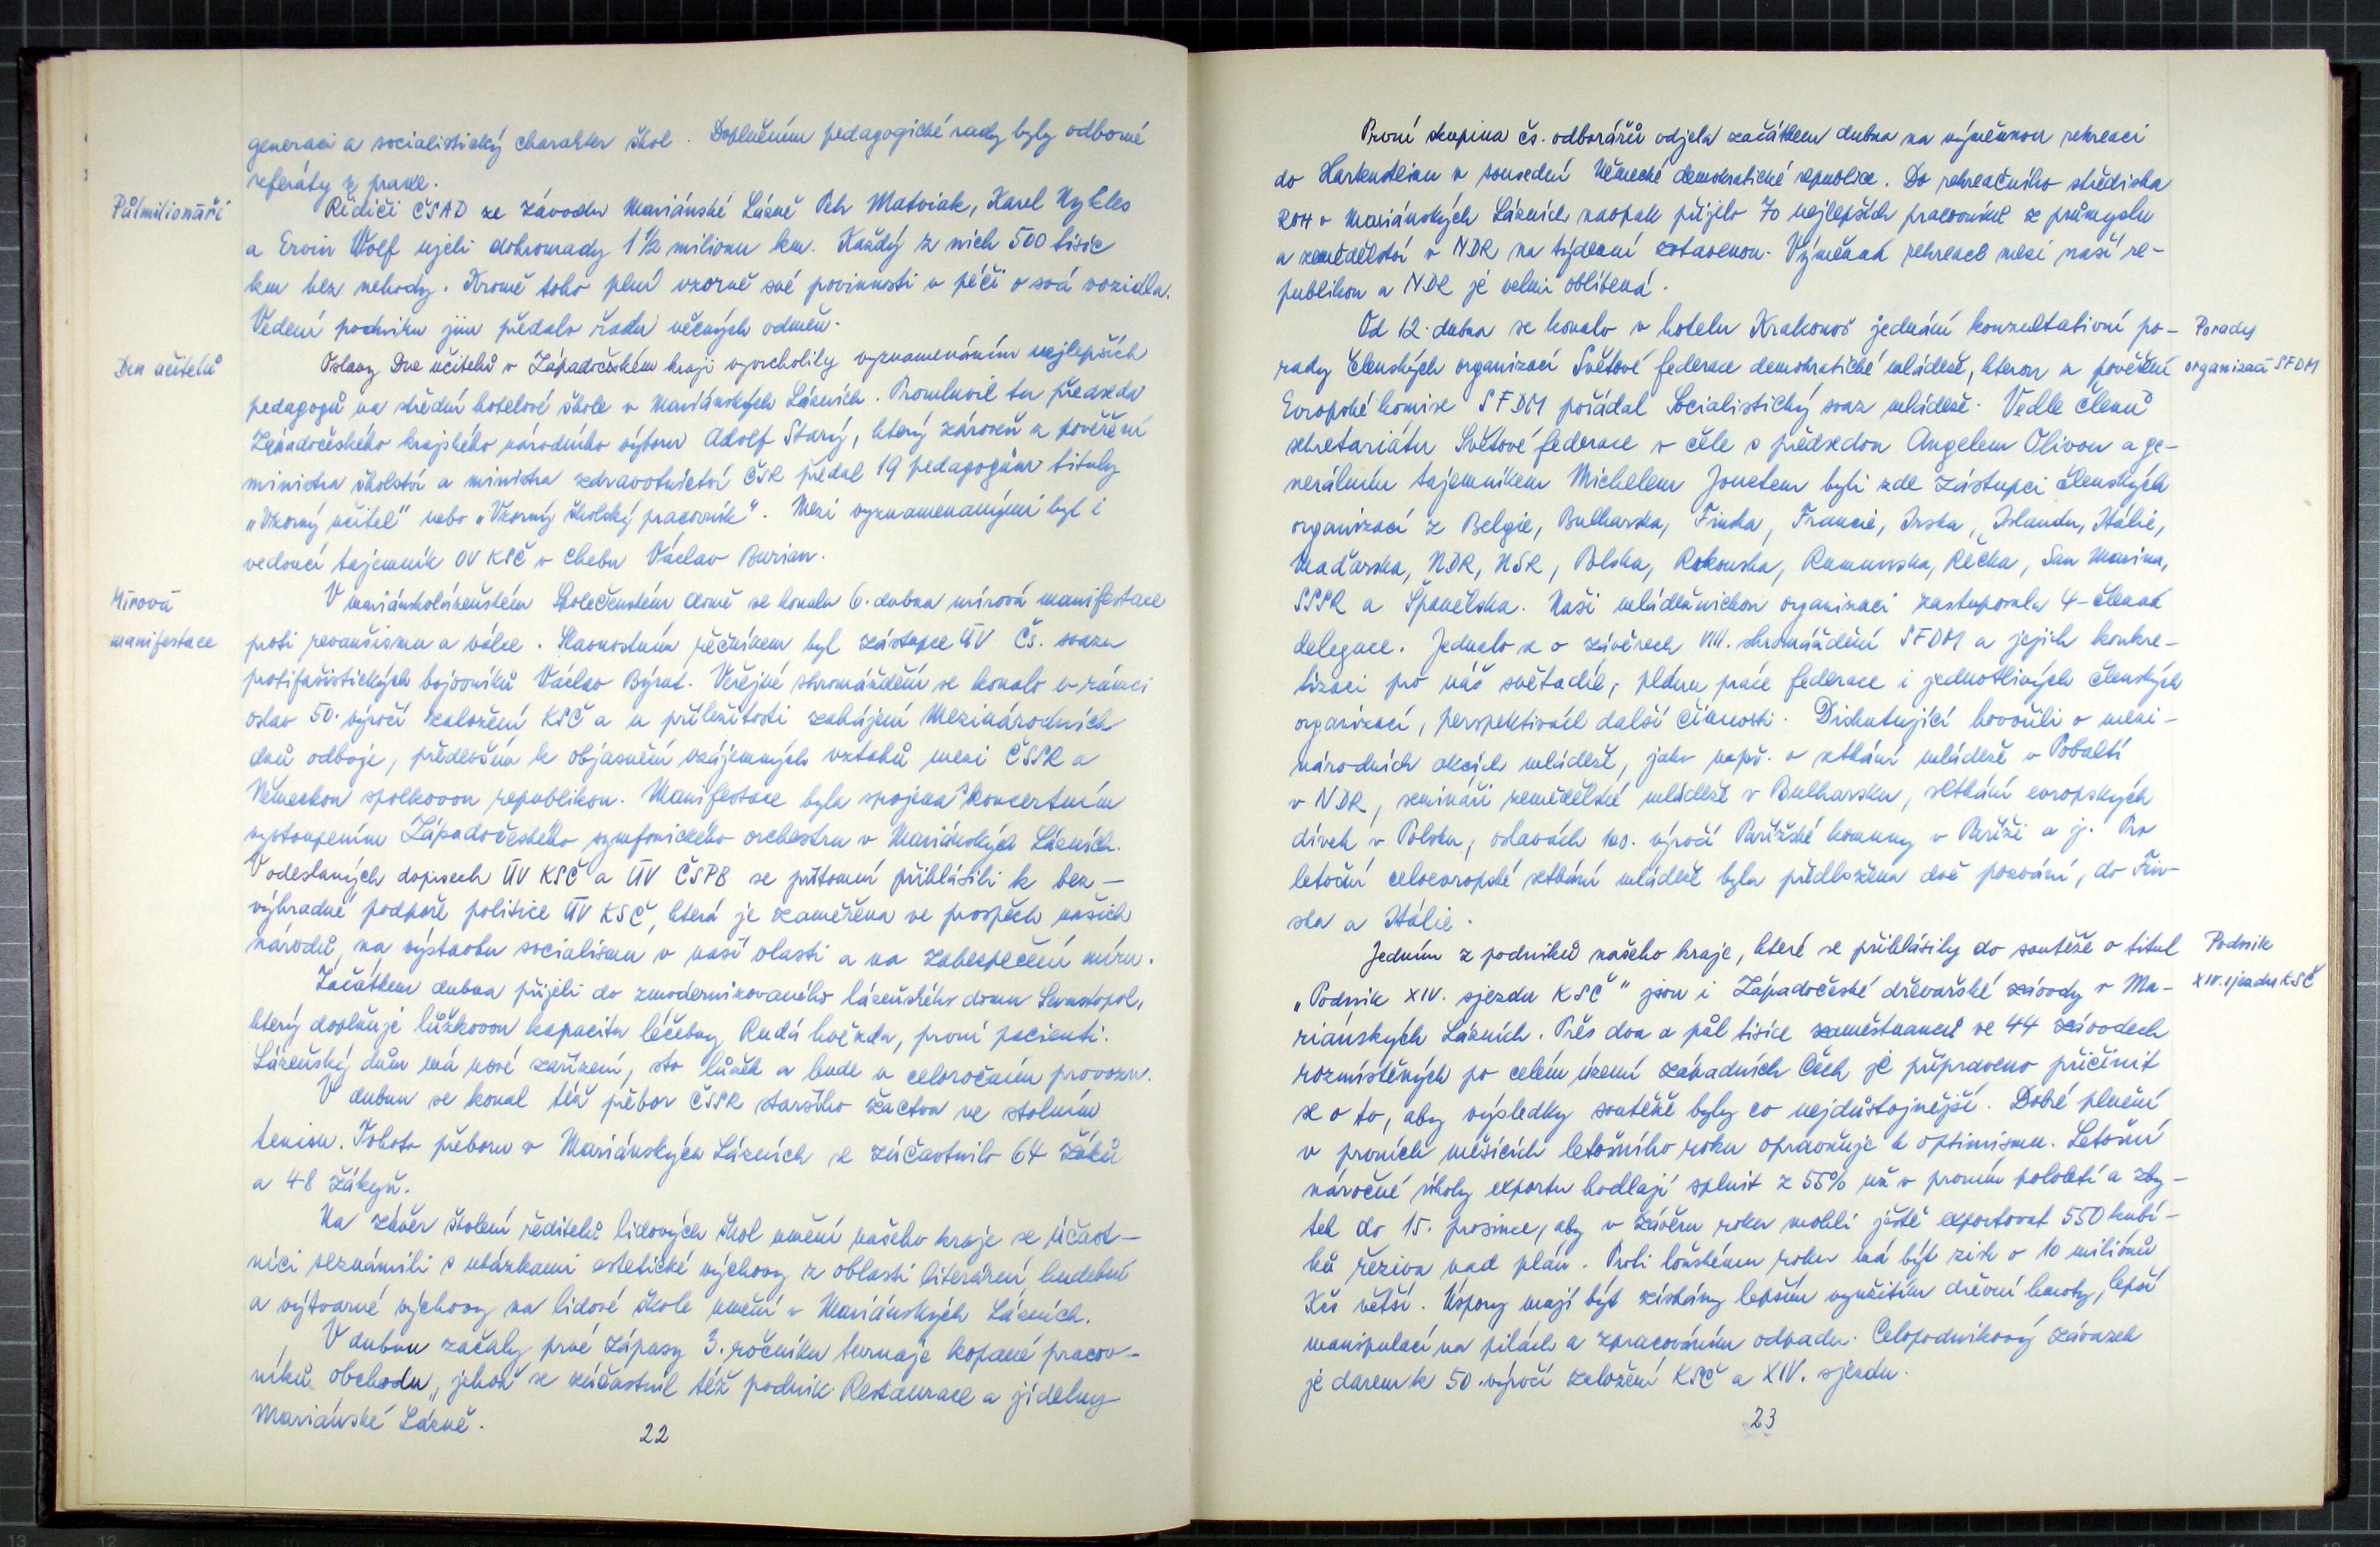 generaci a socialistický charakter škol. Doplněním pedagogické rady byly odborné
referáty z praxe.
Půlmilionáři
Řidiči ČSAD ze závodu Mariánské Lázně Petr Matviak, Karel Nykles
a Ervin Wolf ujeli dohromady 1 1/2 milionu km. Každý z nich 500 tisíc
km bez nehody. Kromě toho plní vzorně své povinnosti v péči o svá vozidla.
Vedení podniku jim předalo řadu věcných odměn.
Den učitelů
Oslavy Dne učitelů v Západočeském kraji vyvrcholily vyznamenáním nejlepších
pedagogů na střední hotelové škole v Mariánských Lázních. Promluvil tu předseda
Západočeského krajského národního výboru Adolf Starý, který zároveň z pověření
ministra školství a ministra zdravotnictví ČSR předal 19 pedagogům tituly
„Vzorný učitel" nebo „Vzorný školský pracovník". Mezi vyznamenanými byl i
vedoucí tajemník OV KSČ v Chebu Václav Burian.
Mírová
manifestace
V mariánskolázeňském Společenském domě se konala 6. dubna mírová manifestace
proti revanšismu a válce. Slavnostním řečníkem byl zástupce ÚV Čs. svazu
protifašistických bojovníků Václav Býrut. Veřejné shromáždění se konalo v rámci
oslav 50. výročí založení KSČ a u příležitosti zahájení Mezinárodních
dnů odboje, především k objasnění vzájemných vztahů mezi ČSSR a
Německou spolkovou republikou. Manifestace byla spojena s koncertním
vystoupením Západočeského symfonického orchestru v Mariánských Lázních.
V odeslaných dopisech ÚV KSČ a ÚV ČSPB se přítomní přihlásili k bez-
výhradné podpoře politice ÚV KSČ, která je zaměřena ve prospěch našich
národů, na výstavbu socialismu v naší vlasti a na zabezpečení míru.
Začátkem dubna přijeli do zmodernizovaného lázeňského domu Sevastopol,
který doplňuje lůžkovou kapacitu léčebny Rudá hvězda, první pacienti.
Lázeňský dům má nové zařízení, sto lůžek a bude v celoročním provozu.
V dubnu se konal též přebor ČSSR staršího žactva ve stolním
tenisu. Tohoto přeboru v Mariánských Lázních se zúčastnilo 64 žáků
a 48 žákyň.
Na závěr školení ředitelů lidových škol umění našeho kraje se účast-
níci seznámili s ukázkami estetické výchovy z oblasti literární, hudební
a výtvarné výchovy na lidové škole umění v Mariánských Lázních.
V dubnu začaly prvé zápasy 3. ročníku turnaje kopané pracov-
níků obchodu, jehož se zúčastnil též podnik Restaurace a jídelny
Mariánské Lázně.
22
První skupina čs. odborářů odjela začátkem dubna na výměnnou rekreaci
do Hartensteinu v sousední Německé demokratické republice. Do rekreačního střediska
ROH v Mariánských Lázních naopak přijelo 70 nejlepších pracovníků z průmyslu
a zemědělství v NDR na týdenní zotavenou. Výměnná rekreace mezi naší re-
publikou a NDR je velmi oblíbená.
Porady
organizací SFDM
Od 12. dubna se konalo v hotelu Krakonoš jednání konzultativní po-
rady členských organizací Světové federace demokratické mládeže, kterou z pověření
Evropské komise SFDM pořádal Socialistický svaz mládeže. Vedle členů
sekretariátu Světové federace v čele s předsedou Angelem Olivou a ge-
nerálním tajemníkem Michelem Jouetem byli zde zástupci členských
organizací z Belgie, Bulharska, Finska, Francie, Irska, Islandu, Itálie,
Maďarska, NDR, NSR, Polska, Rakouska, Rumunska, Řecka, San Marina,
SSSR a Španělska. Naši mládežnickou organizaci zastupovala 4-členná
delegace. Jednalo se o závěrech VIII. shromáždění SFDM a jejich konkre-
tizaci pro náš světadíl, plánu práce federace i jednotlivých členských
organizací, perspektivách další činnosti. Diskutující hovořili o mezi-
národních akcích mládeže, jako např. o setkání mládeže v Pobaltí
v NDR, semináři zemědělské mládeže v Bulharsku, setkání evropských
dívek v Polsku, oslavách 100. výročí Pařížské komuny v Paříži a j. Pro
letošní celoevropské setkání mládeže byla předložena dvě pozvání, do Fin-
ska a Itálie.
Podnik
XIV. sjezdu KSČ
Jedním z podniků našeho kraje, které se přihlásily do soutěže o titul
„Podnik XIV. sjezdu KSČ" jsou i Západočeské dřevařské závody v Ma-
riánských Lázních. Přes dva a půl tisíce zaměstnanců ve 44 závodech
rozmístěných po celém území západních Čech je připraveno přičinit
se o to, aby výsledky soutěže byly co nejdůstojnější. Dobré plnění
v prvních měsících letošního roku opravňuje k optimismu. Letošní
náročné úkoly exportu hodlají splnit z 55% už v prvním pololetí a zby-
tek do 15. prosince, aby v závěru roku mohli ještě exportovat 550 kubí-
ků řeziva nad plán. Proti loňskému roku má být zisk o 10 miliónů
Kčs větší. Úspory mají být získány lepším využitím dřevní hmoty, lepší
manipulací na pilách a zpracováním odpadu. Celopodnikový závazek
je darem k 50. výročí založení KSČ a XIV. sjezdu.
23